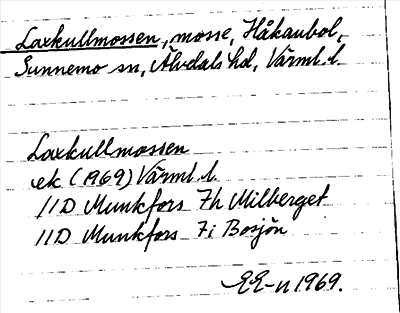 Laxkullmossen, mosse, Håkanbol,
Sunnemo sn, Älvdals hd, Värml. l.
Laxkullmossen
ek (1969) Värml. l.
11D Munkfors 7h Milberget
11D Munkfors 7i Bosjön
EE-n 1969.